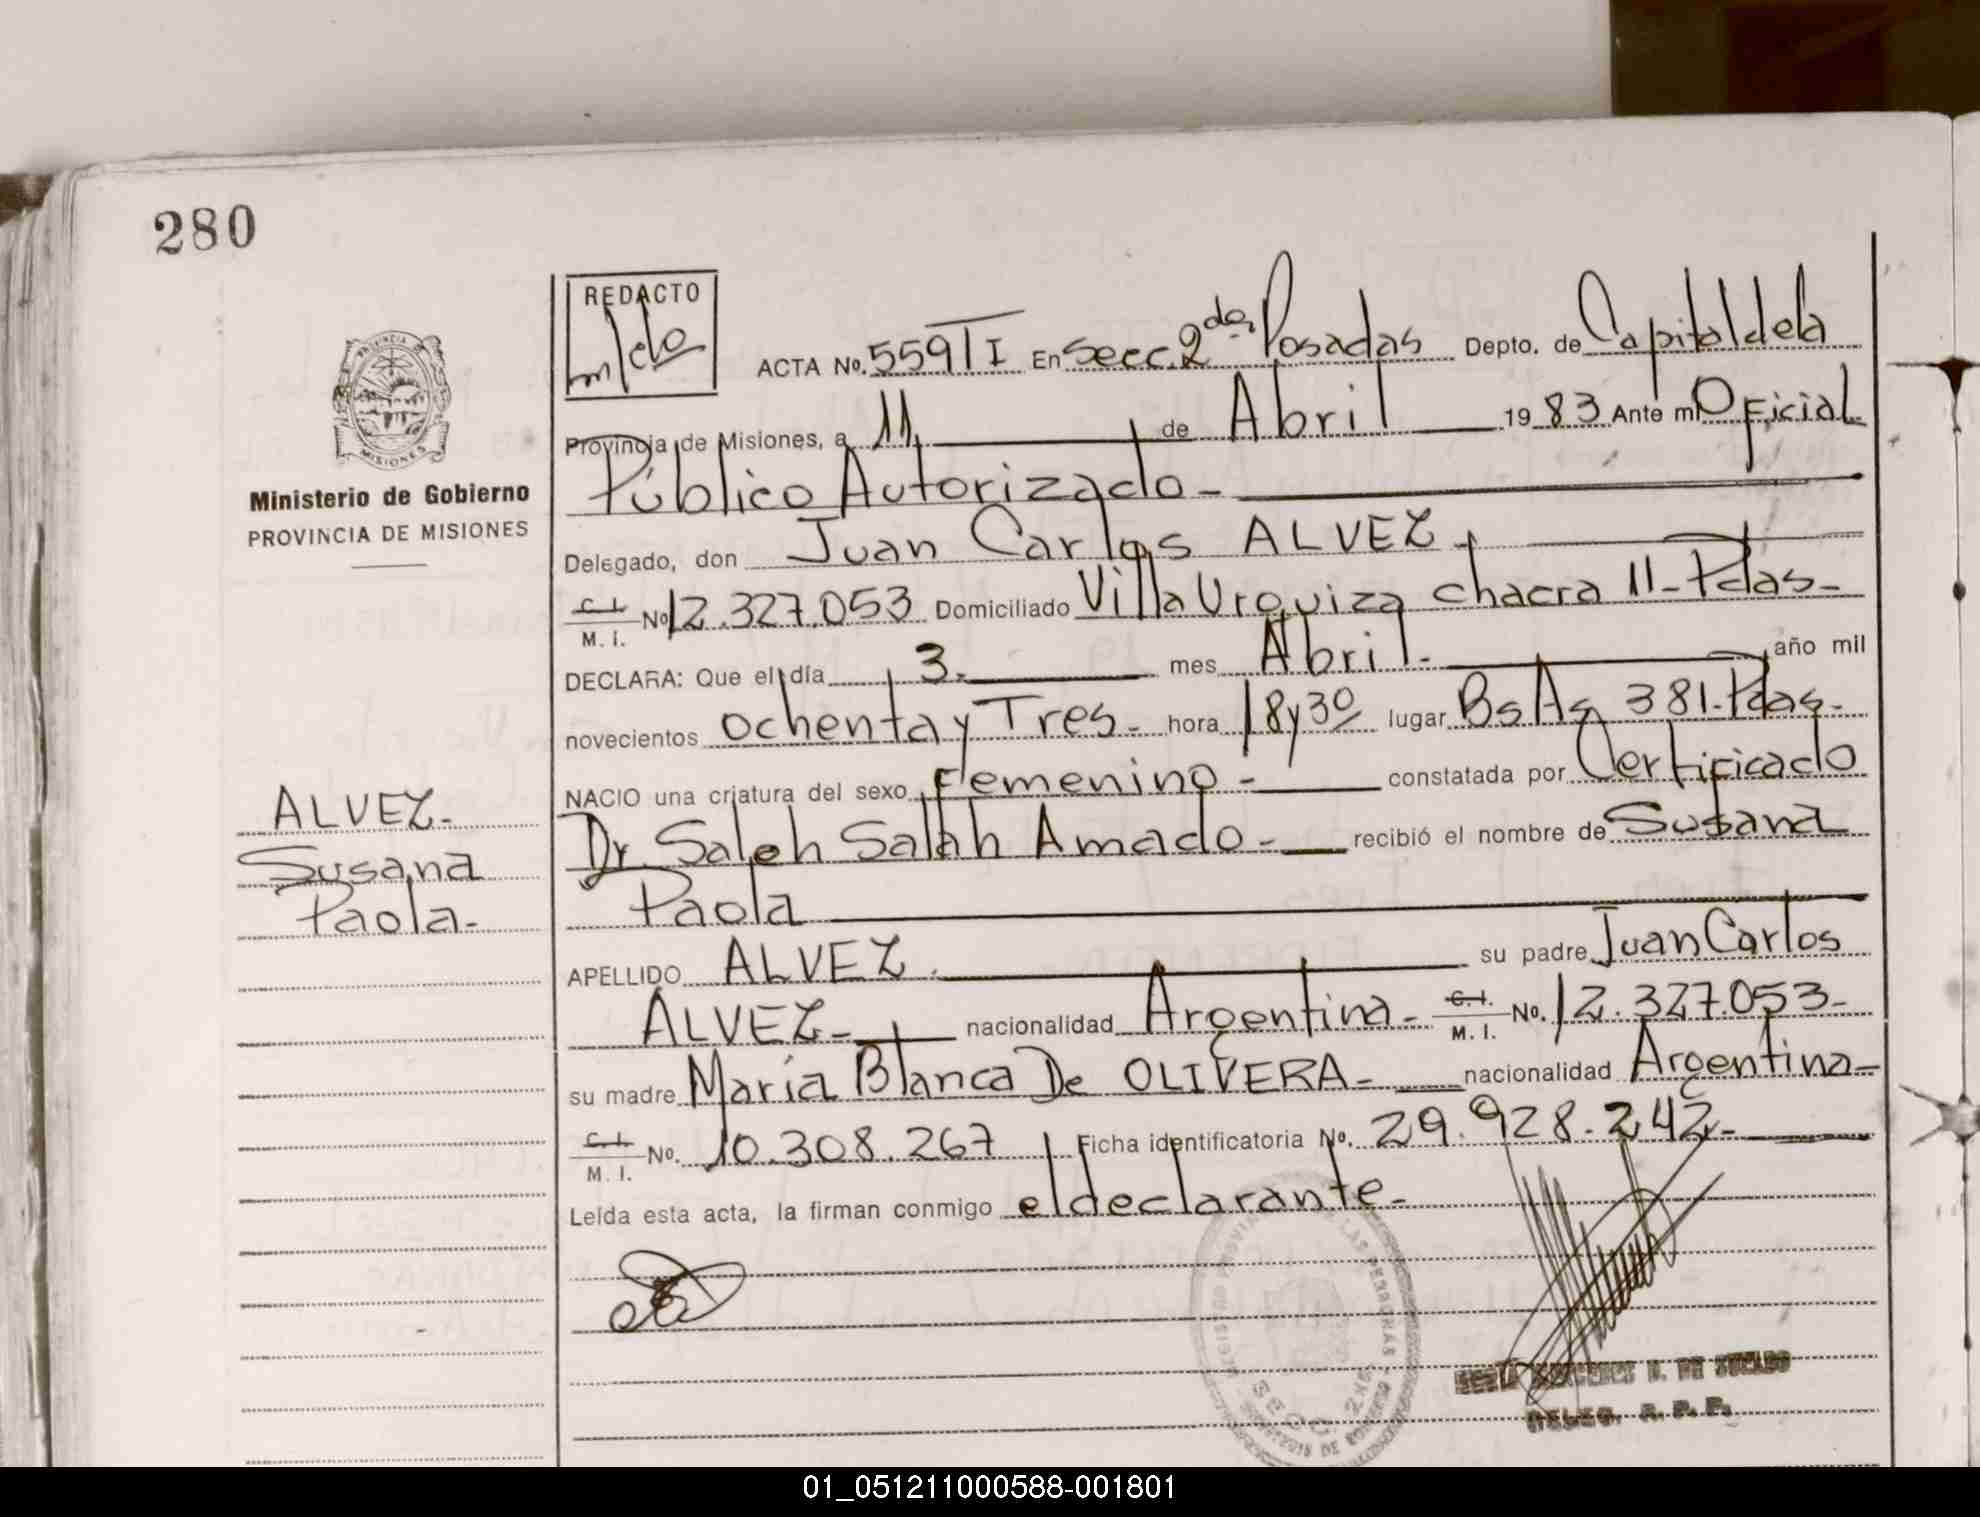 280
REDACTO
ACTA No. 559 T I En Secc. 2da Posadas Depto. de Capital de la
Provincia de Misiones, a 11, de Abril 1983 Ante mi Oficial
Público Autorizado -
Ministerio de Gobierno
PROVINCIA DE MISIONES
Delegado, don Juan Carlos ALVEZ.
C. I.
M. I. No 12.327.053 Domiciliado Villa Urquiza chacra 11 - Pdas -
DECLARA: Que el día 3. mes Abril. año mil
novecientos ochenta y Tres - hora 18 y 30 lugar Bs As 381 - Pdas -
NACIO una criatura del sexo Femenino - constatada por Certificado
Dr. Saleh Salah Amado - recibió el nombre de Susana
Paola
ALVEZ -
Susana
Paola -
APELLIDO ALVEZ. su padre Juan Carlos
ALVEZ - nacionalidad Argentina - C. I.
M. I. No. 12.327.053 -
su madre María Blanca De OLIVERA - nacionalidad Argentina -
C. I.
M. I. No. 10.308.267 Ficha identificatoria No. 29.928.242 -
Leída esta acta, la firman conmigo el declarante -
PROVINCIA DE MISIONES
LAS PERSONAS
SECC. 2
DE
DELEG. R. P. P.
01_051211000588-001801